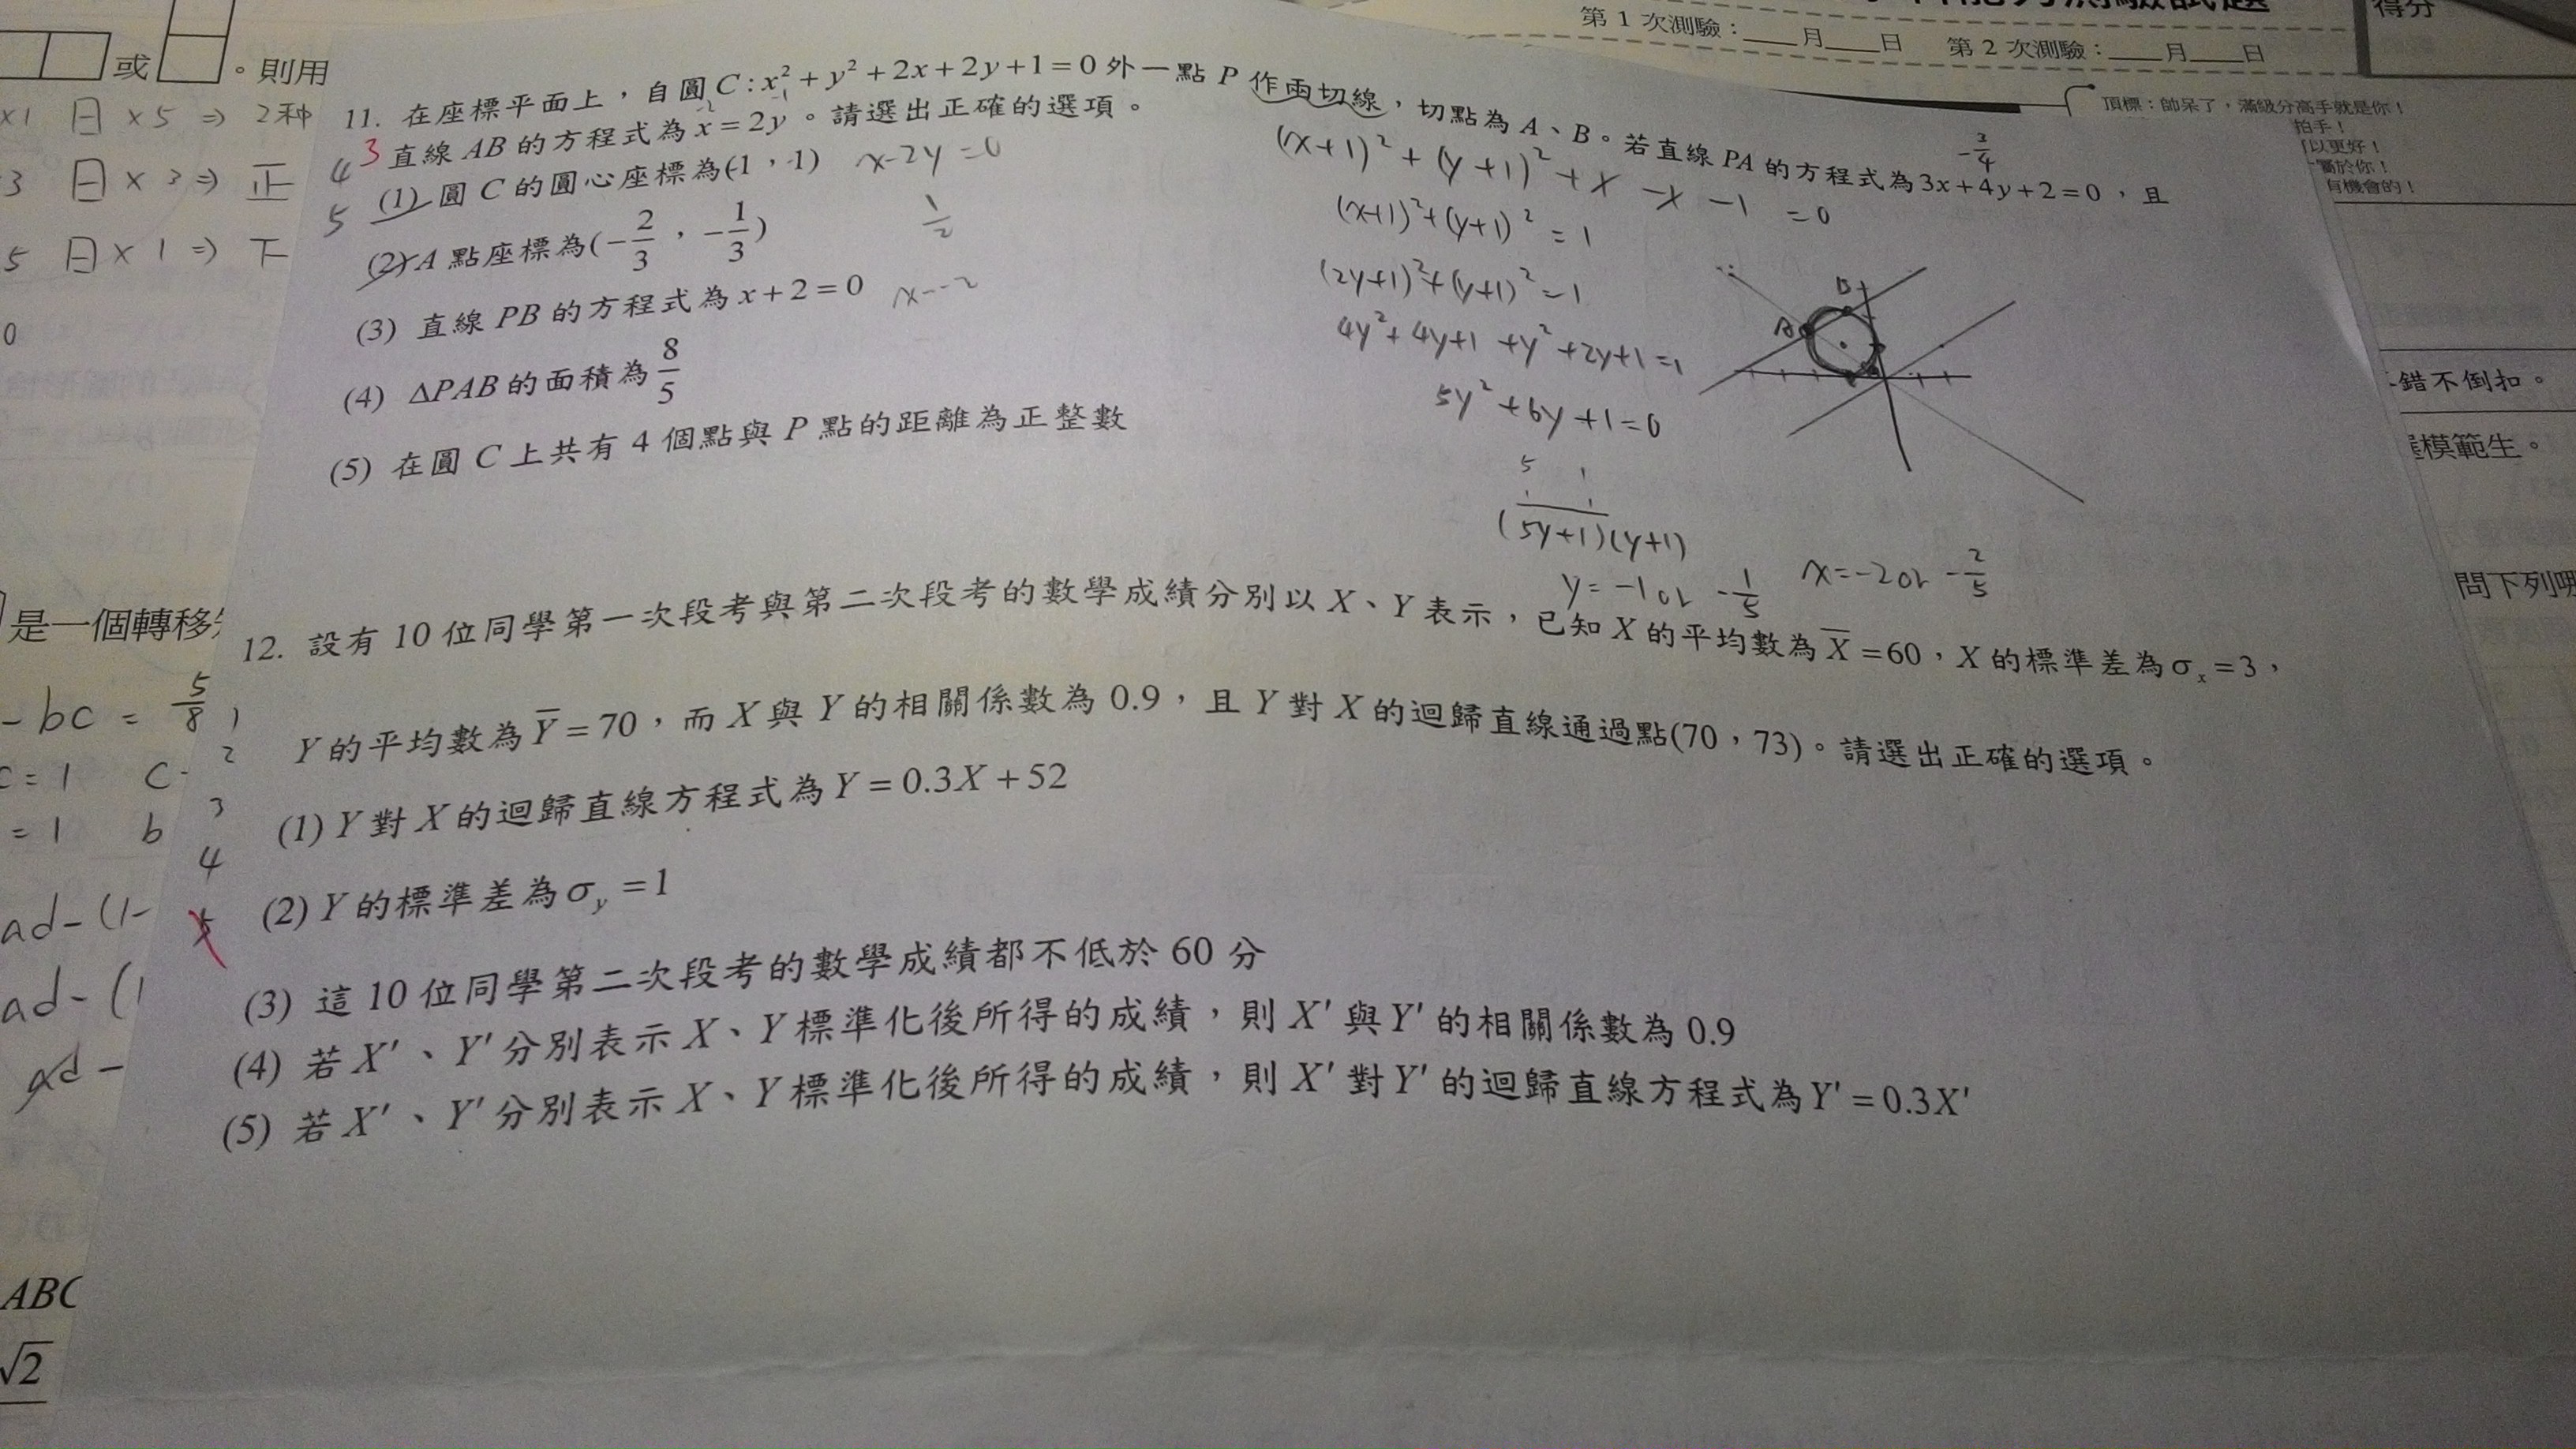 得分
第 1 次測驗：____月____日 第 2 次測驗：____月____日
頂標：帥呆了，滿級分高手就是你！
拍手！
以更好！
屬於你！
有機會的！
或 。則用
x1 日 x 5 ⇒ 2种
3 日 x 3 ⇒ 正
5 日 x 1 ⇒ 下
0
11. 在座標平面上，自圓 C : x² + y² + 2x + 2y + 1 = 0 外一點 P 作兩切線，切點為 A、B。若直線 PA 的方程式為 3x + 4y + 2 = 0，且
直線 AB 的方程式為 x = 2y。請選出正確的選項。
3
4
5
(1) 圓 C 的圓心座標為(-1，-1)
(2) A 點座標為(-2/3，-1/3)
(3) 直線 PB 的方程式為 x + 2 = 0
(4) ΔPAB 的面積為 8/5
(5) 在圓 C 上共有 4 個點與 P 點的距離為正整數
x-2y=0
1/2
x=-2
-3/4
(x+1)² + (y+1)² + x - x - 1 = 0
(x+1)² + (y+1)² = 1
(2y+1)² + (y+1)² = 1
4y² + 4y+1 + y² + 2y+1 = 1
5y² + 6y + 1 = 0
5 1
1 1
(5y+1)(y+1)
y = -1 or -1/5 x = -2 or -2/5
A
B
錯不倒扣。
模範生。
問下列哪
是一個轉移
12. 設有 10 位同學第一次段考與第二次段考的數學成績分別以 X、Y 表示，已知 X 的平均數為 X̄ = 60，X 的標準差為 σx = 3，
Y 的平均數為 Ȳ = 70，而 X 與 Y 的相關係數為 0.9，且 Y 對 X 的迴歸直線通過點(70，73)。請選出正確的選項。
(1) Y 對 X 的迴歸直線方程式為 Y = 0.3X + 52
(2) Y 的標準差為 σy = 1
(3) 這 10 位同學第二次段考的數學成績都不低於 60 分
(4) 若 X'、Y' 分別表示 X、Y 標準化後所得的成績，則 X' 與 Y' 的相關係數為 0.9
(5) 若 X'、Y' 分別表示 X、Y 標準化後所得的成績，則 X' 對 Y' 的迴歸直線方程式為 Y' = 0.3X'
1
2
3
4
5
- bc = 5/8
c = 1 c-
= 1 b
ad - (1-
ad - (1
ad -
ABC
√2